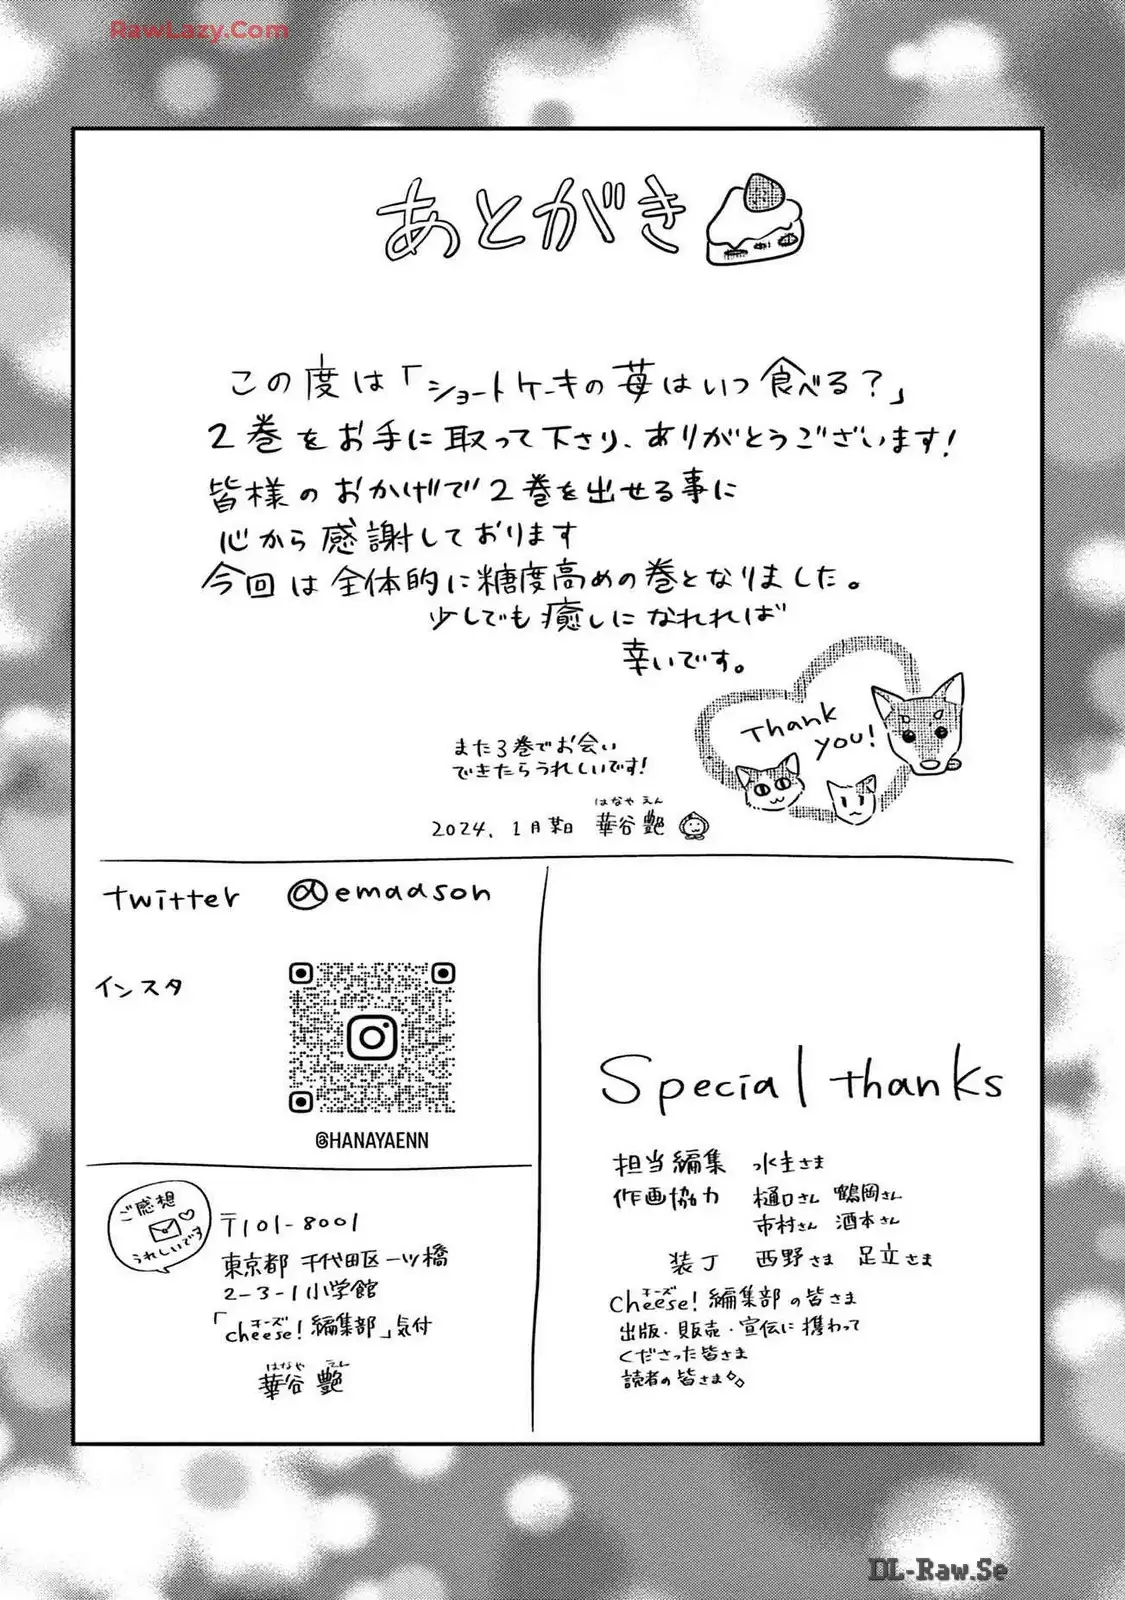 RawLazy.Com
あとがき
この度は「ショートケーキの苺はいつ食べる?」
2巻をお手に取って下さり、ありがとうございます!
皆様のおかげで2巻を出せる事に
心から感謝しております
今回は全体的に糖度高めの巻となりました。
少しでも癒しになれれば
幸いです。
Thank you!
また3巻でお会い
できたらうれしいです!
はなや えん
2024、1月某日 華谷艶
twitter @emaason
インスタ
@HANAYAENN
ご感想
うれしいです
〒101-8001
東京都 千代田区一ツ橋
2-3-1小学館
チーズ
「cheese!編集部」気付
はなや えん
華谷 艶
Special thanks
担当編集 水主さま
作画協力 樋口さん 鶴岡さん
市村さん 酒本さん
装丁 西野さま 足立さま
チーズ
Cheese!編集部の皆さま
出版・販売・宣伝に携わって
くださった皆さま
読者の皆さま
DL-Raw.Se